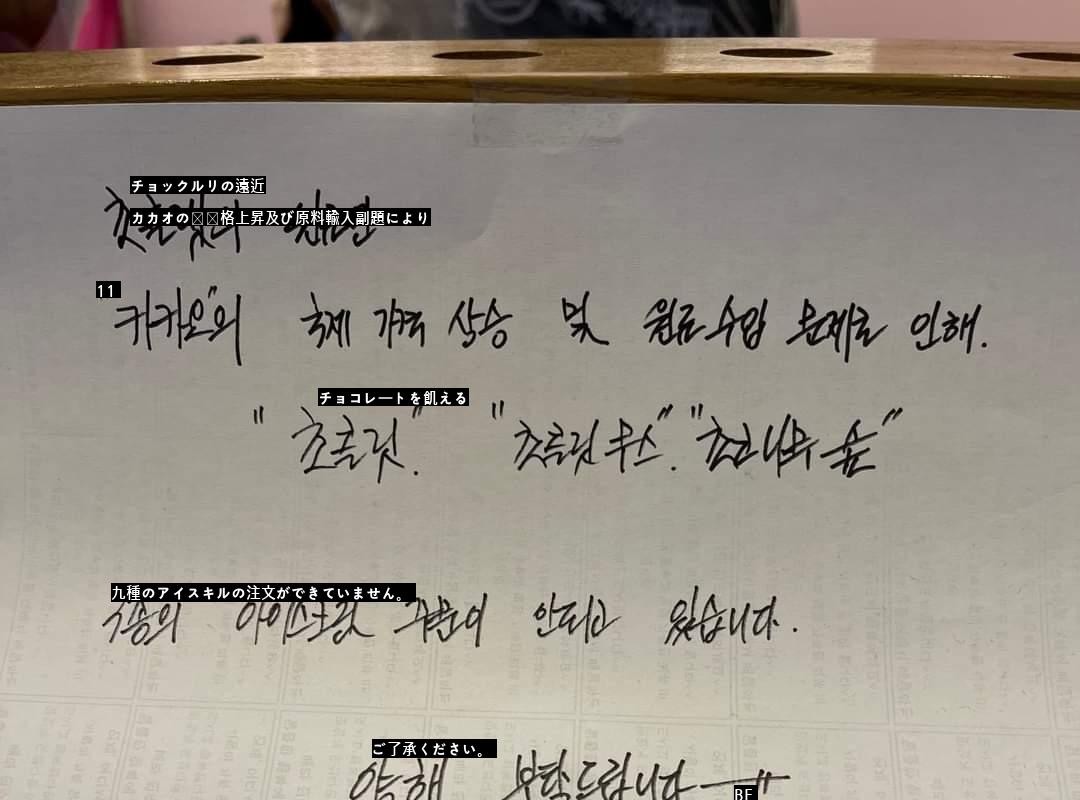 チョックルリの遠近
カカオの
格上昇及び原料輸入副題により
11
카카오"의 국제 가격 상승 및 원료 수입 문제로 인해.
チョコレートを飢える
" 초콜릿". "초콜릿 무스". "초코나무 숲"
九種のアイスキルの注文ができていません。
아이스크림 안되고 있습니다.
ご了承ください。
양해 부탁드립니다
BF